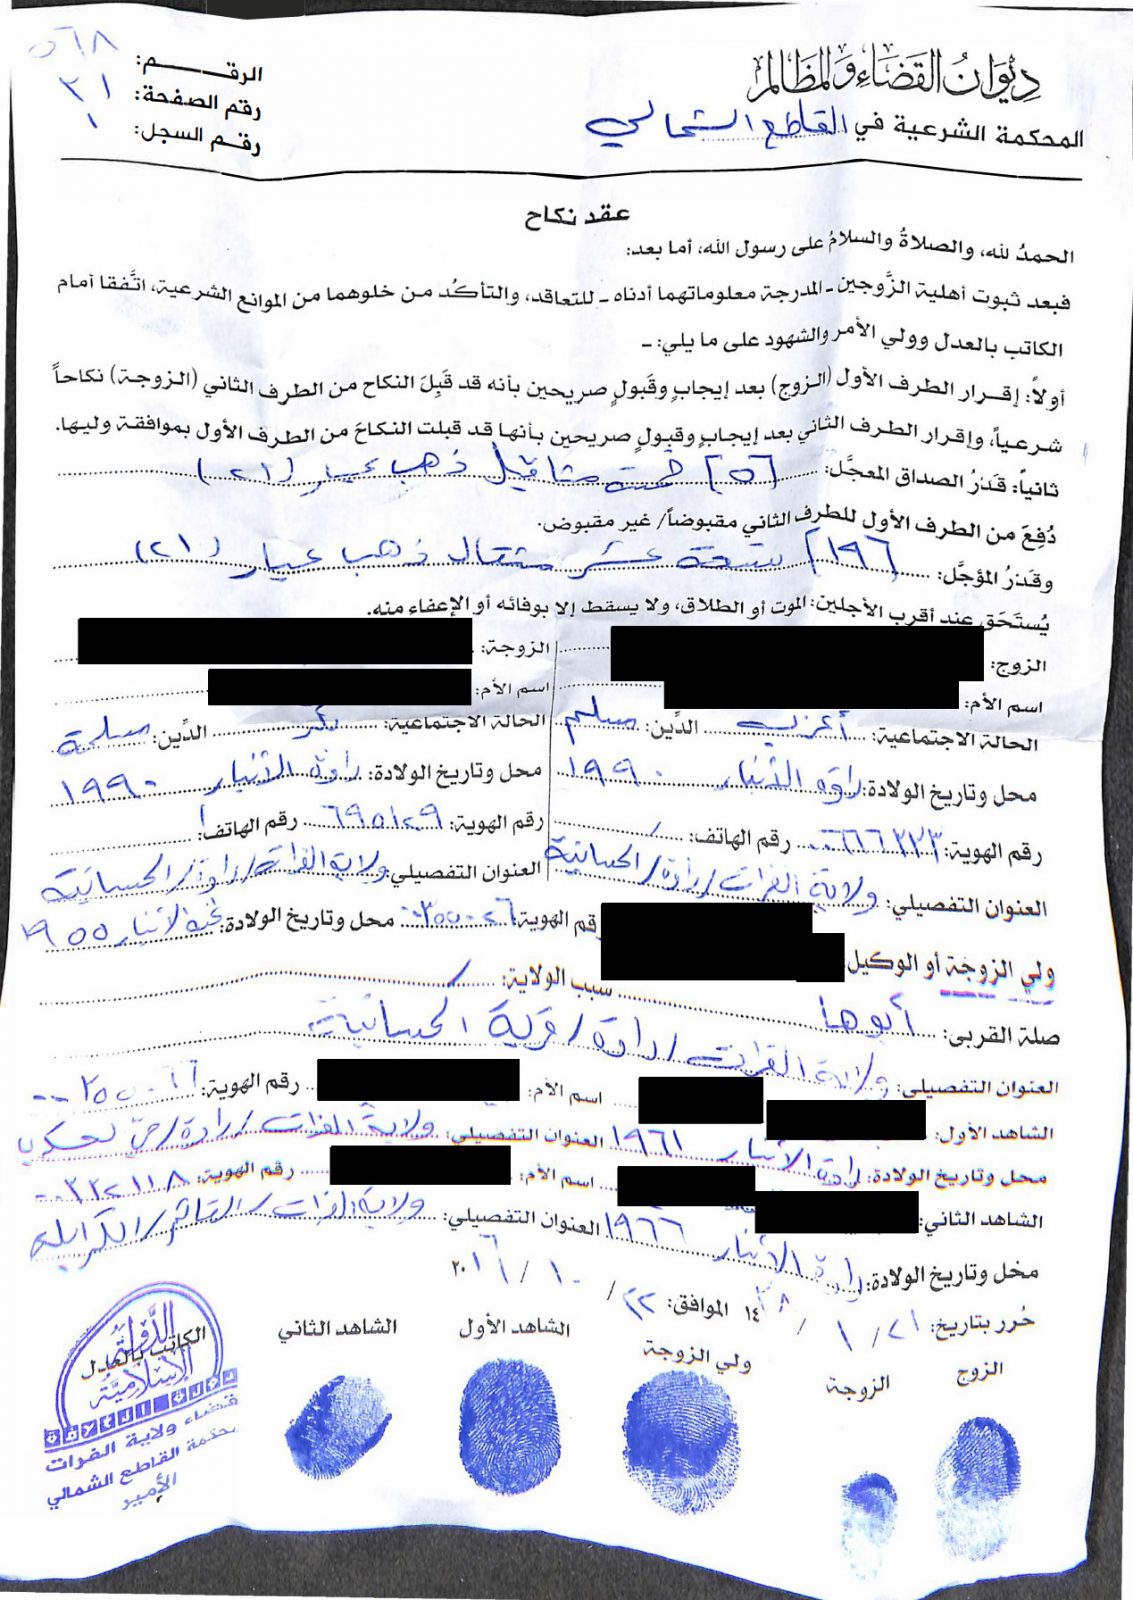 ديوان القضاء والمظالم
المحكمة الشرعية في القاطع الشمالي
الرقم: ٥٦٨
رقم الصفحة: ٣١
رقم السجل: ١
عقد نكاح
الحمدُ لله، والصلاةُ والسلامُ على رسول الله، أما بعد:
فبعد ثبوت أهلية الزَّوجين ـ المدرجة معلوماتهما أدناه ـ للتعاقد، والتأكُد من خلوهما من الموانع الشرعية، اتَّفقا أمام
الكاتب بالعدل وولي الأمر والشهود على ما يلي: ـ
أولاً: إقرار الطرف الأول (الزوج) بعد إيجابٍ وقَبولٍ صريحين بأنه قد قَبِلَ النكاح من الطرف الثاني (الزوجة) نكاحاً
شرعياً، وإقرار الطرف الثاني بعد إيجابٍ وقبولٍ صريحين بأنها قد قبلت النكاحَ من الطرف الأول بموافقة وليها.
ثانياً: قَدَرُ الصداق المعجَّل: [٥] خمسة مثاقيل ذهب عيار (٢١)
دُفِعَ من الطرف الأول للطرف الثاني مقبوضاً/ غير مقبوض.
وقَدَرُ المؤجَّل: [١٩] تسعة عشر مثقال ذهب عيار (٢١)
يُستَحَق عند أقرب الأجلين: الموت أو الطلاق، ولا يسقط إلا بوفائه أو الإعفاء منه.
الزوج: الزوجة:
اسم الأم: اسم الأم:
الحالة الاجتماعية: أعزب الدِّين: مسلم الحالة الاجتماعية: بكر الدِّين: مسلمة
محل وتاريخ الولادة: راوة الأنبار ١٩٩٠ محل وتاريخ الولادة: راوة الأنبار ١٩٩٠
رقم الهوية: رقم الهاتف: رقم الهوية: رقم الهاتف:
العنوان التفصيلي: ولاية الفرات/راوة/الحسانية العنوان التفصيلي: ولاية الفرات/راوة/الحسانية
ولي الزوجة أو الوكيل: رقم الهوية: محل وتاريخ الولادة: الأنبار ١٩٥٥
صلة القربى: أبوها سبب الولاية:
العنوان التفصيلي: ولاية الفرات/راوة/قرية الحسانية
الشاهد الأول: اسم الأم: رقم الهوية:
محل وتاريخ الولادة: راوة الأنبار ١٩٦١ العنوان التفصيلي: ولاية الفرات/راوة/حي
الشاهد الثاني: اسم الأم: رقم الهوية:
محل وتاريخ الولادة: راوة الأنبار ١٩٦٦ العنوان التفصيلي: ولاية الفرات/القائم/الكرابلة
حُرر بتاريخ: ٢١/ ١/ ١٤٣٨ الموافق: ٢٢/ ١٠/ ٢٠١٦
الزوج
الزوجة
ولي الزوجة
الشاهد الأول
الشاهد الثاني
الكاتب بالعدل
الدولة الإسلامية
قضاء ولاية الفرات
محكمة القاطع الشمالي
الأمير